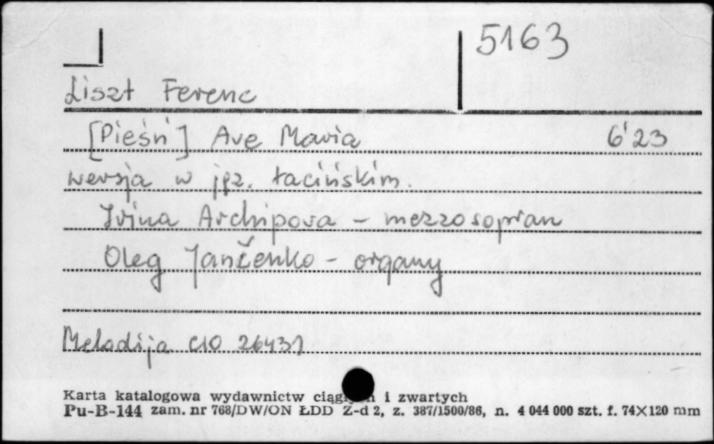 5163
Liszt Ferenc
[Pieśń] Ave Maria 6'23
wersja w jęz. łacińskim.
Irina Archipova - mezzosopran
Oleg Jančenko - organy
Melodija C10 26431
Karta katalogowa wydawnictw i zwartych
Pu-B-144 zam. nr 768/DW/ON ŁDD Z-d 2, z. 387/1500/86, n. 4 044 000 szt. f. 74×120 mm